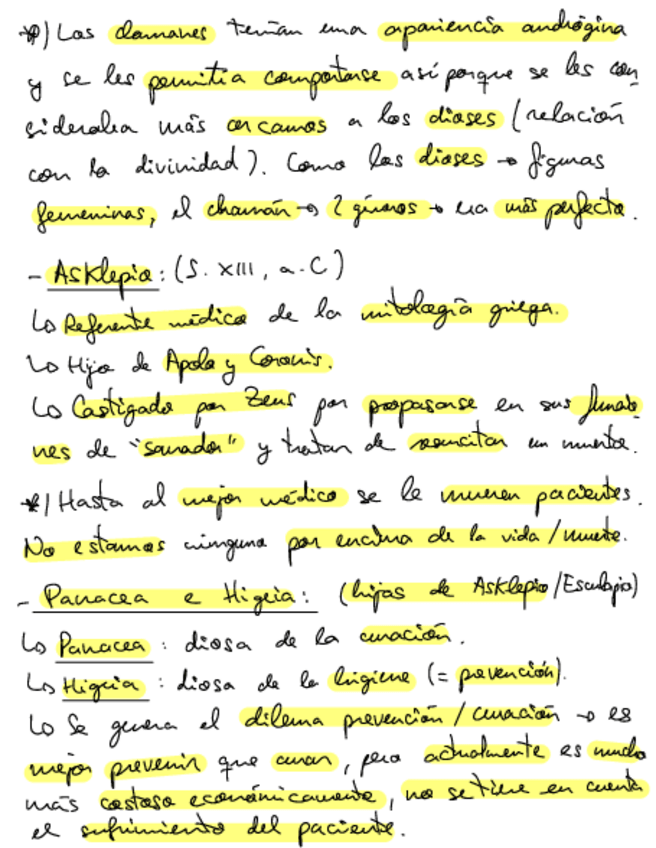 *) Los chamanes tenían una apariencia andrógina
y se les permitía comportarse así porque se les con
sideraba más cercanos a los dioses (relación
con la divinidad). Como los dioses → figuras
femeninas, el chamán → 2 géneros → era más perfecto.
- Asklepio: (S. XIII, a.C)
↳ Referente médico de la mitología griega.
↳ Hijo de Apolo y Coronis.
↳ Castigado por Zeus por propasarse en sus funcio
nes de "sanador" y tratar de resucitar un muerto.
*) Hasta al mejor médico se le mueren pacientes.
No estamos ninguno por encima de la vida/muerte.
- Panacea e Higeia: (hijas de Asklepio/Esculapio)
↳ Panacea: diosa de la curación.
↳ Higeia: diosa de la higiene (= prevención).
↳ Se genera el dilema prevención/curación → es
mejor prevenir que curar, pero actualmente es mucho
más costoso económicamente, no se tiene en cuenta
el sufrimiento del paciente.